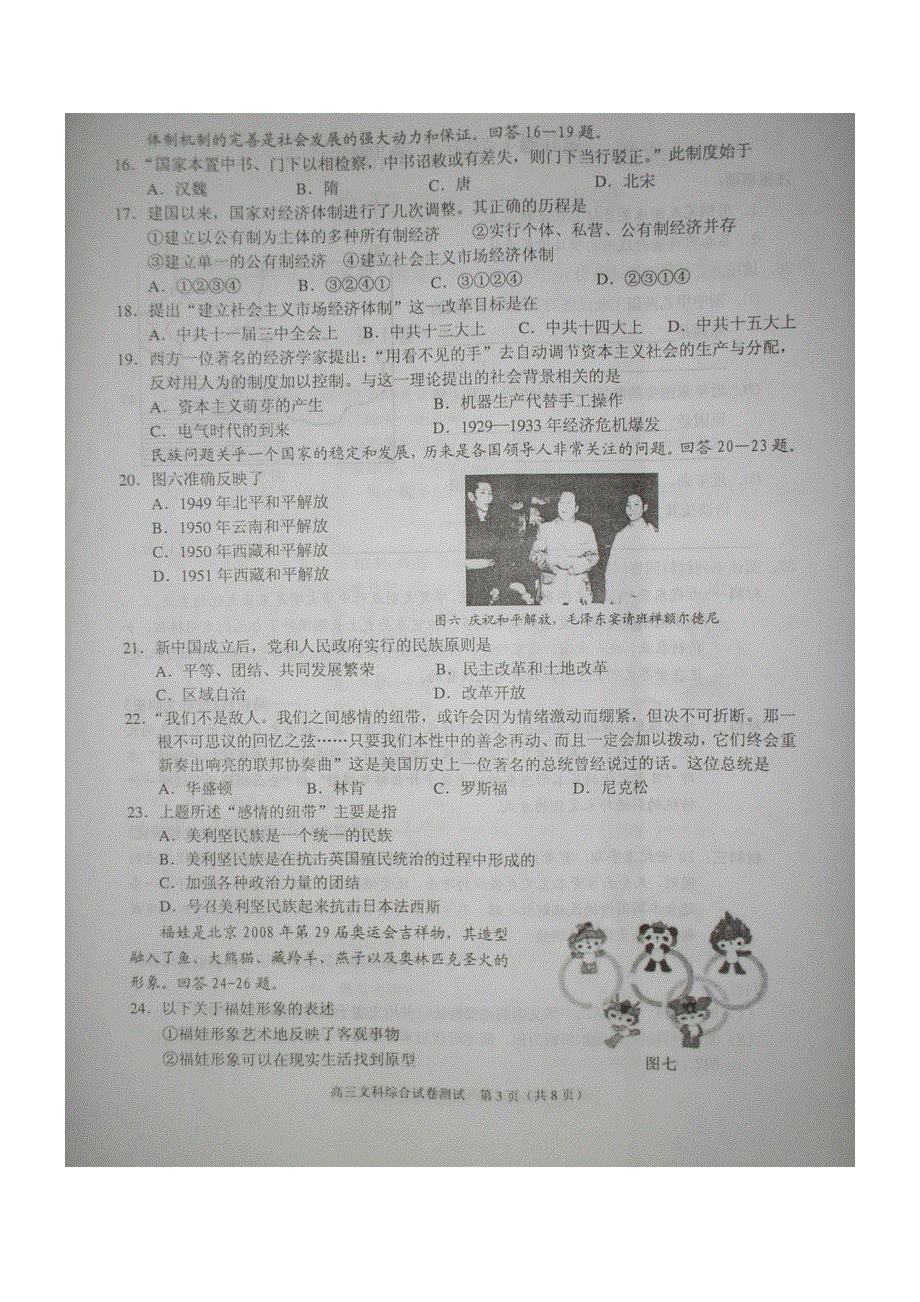 体制机制的完善是社会发展的强大动力和保证。回答16—19题。
16.“国家本置中书、门下以相检察，中书诏敕或有差失，则门下当行驳正。”此制度始于
A．汉魏 B．隋 C．唐 D．北宋
17．建国以来，国家对经济体制进行了几次调整。其正确的历程是
①建立以公有制为主体的多种所有制经济 ②实行个体、私营、公有制经济并存
③建立单一的公有制经济 ④建立社会主义市场经济体制
A．①②③④ B．③②④① C．③①②④ D．②③①④
18．提出“建立社会主义市场经济体制”这一改革目标是在
A．中共十一届三中全会上 B．中共十三大上 C．中共十四大上 D．中共十五大上
19．西方一位著名的经济学家提出：“用看不见的手”去自动调节资本主义社会的生产与分配，
反对用人为的制度加以控制。与这一理论提出的社会背景相关的是
A．资本主义萌芽的产生 B．机器生产代替手工操作
C．电气时代的到来 D．1929—1933年经济危机爆发
民族问题关乎一个国家的稳定和发展，历来是各国领导人非常关注的问题。回答20—23题。
20．图六准确反映了
A．1949年北平和平解放
B．1950年云南和平解放
C．1950年西藏和平解放
D．1951年西藏和平解放
图六 庆祝和平解放，毛泽东宴请班禅额尔德尼
21．新中国成立后，党和人民政府实行的民族原则是
A．平等、团结、共同发展繁荣 B．民主改革和土地改革
C．区域自治 D．改革开放
22．“我们不是敌人。我们之间感情的纽带，或许会因为情绪激动而绷紧，但决不可折断。那一
根不可思议的回忆之弦……只要我们本性中的善念再动、而且一定会加以拨动，它们终会重
新奏出响亮的联邦协奏曲”这是美国历史上一位著名的总统曾经说过的话。这位总统是
A．华盛顿 B．林肯 C．罗斯福 D．尼克松
23．上题所述“感情的纽带”主要是指
A．美利坚民族是一个统一的民族
B．美利坚民族是在抗击英国殖民统治的过程中形成的
C．加强各种政治力量的团结
D．号召美利坚民族起来抗击日本法西斯
福娃是北京2008年第29届奥运会吉祥物，其造型
融入了鱼、大熊猫、藏羚羊、燕子以及奥林匹克圣火的
形象。回答24-26题。
24．以下关于福娃形象的表述
①福娃形象艺术地反映了客观事物
②福娃形象可以在现实生活找到原型
图七
高三文科综合试卷测试 第3页（共8页）